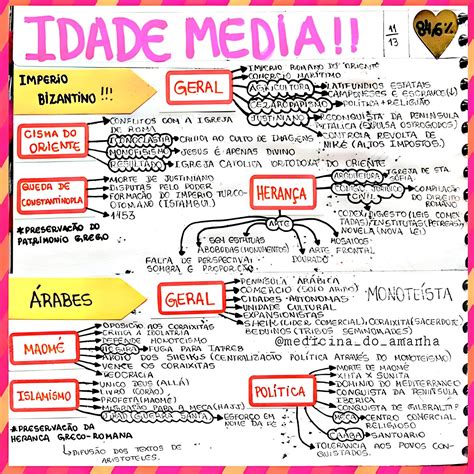 IDADE MEDIA!!
11
13
84,6%
IMPERIO
BIZANTINO !!!
GERAL
IMPÉRIO ROMANO DO ORIENTE
COMERCIO MARITIMO
AGRICULTURA
LATIFUNDIOS ESTATAIS
CAMPONESES E ESCRAVOS
CEZAROPAPISMO
POLITICA + RELIGIÃO
JUSTINIANO
RECONQUISTA DA PENINSULA
ITÁLICA (EXPULSA OSTROGODOS)
CONTROLA REVOLTA DE
NIKÉ (ALTOS IMPOSTOS)
CISMA DO
ORIENTE
CONFLITOS COM A IGREJA
DE ROMA
ICONOCLASTIA
CRITICA AO CULTO DE IMAGENS
MONOFISISMO
JESUS É APENAS DIVINO
RESULTADO
IGREJA CATOLICA ORTODOXA DO ORIENTE
QUEDA DE
CONSTANTINOPLA
MORTE DE JUSTINIANO
DISPUTAS PELO PODER
FORMAÇÃO DO IMPERIO TURCO-
OTOMANO (ISTAMBUL)
1453
*PRESERVAÇÃO DO
PATRIMONIO GREGO
HERANÇA
ARQUITETURA
IGREJA DE STA
SOFIA
CODIGO JURIDICO
CIVIL
COMPILAÇÃO
DO DIREITO
ROMANO
CODEX/DIGESTO (LEIS COMEN
TADAS)/INSTITUTAS
NOVELA (NOVA LEI)
ARTE
SEM ESTATUAS
ABOBODAS (MONUMENTOS)
FALTA DE PERSPECTIVA
SOMBRA E PROPORÇÃO
DOURADO
ARTE FRONTAL
MOSAICOS
ÁRABES
GERAL
PENINSULA ARÁBICA
COMERCIO (SOLO ARIDO)
CIDADES AUTONOMAS
UNIDADE CULTURAL
EXPANSIONISTAS
SHEIK (LIDER COMERCIAL), CORAIXITA (SACERDOTE)
BEDUINOS (TRIBOS SEMINOMADES)
MONOTEÍSTA
@medicina_do_amanha
MAOMÉ
OPOSIÇÃO AOS CORAIXITAS
CRITICA A IDOLATRIA
DEFENDE MONOTEISMO
HEGIRA
FUGA PARA IATREB
APOIO DOS SHEIKS (CENTRALIZAÇÃO POLITICA ATRAVÉS DO MONOTEISMO)
VENCE OS CORAIXITAS
TEOCRACIA
ISLAMISMO
UNICO DEUS (ALLÁ)
LIVRO (CORÃO)
PROFETA (MAOMÉ)
MIGRAÇÃO PARA A MECA (HAJJ)
JIHAD (GUERRA SANTA)
ESFORÇO EM
NOME DA FÉ
*PRESERVAÇÃO DA
HERANÇA GRECO-ROMANA
DIFUSÃO DOS TEXTOS DE
ARISTOTELES.
POLÍTICA
MORTE DE MAOMÉ
XIITA X SUNITA
DOMINIO DO MEDITERRANEO
CONQUISTA DA PENINSULA
IBERICA
CONQUISTA DE GILBRALTAR
MECA
CENTRO COMERCIAL
RELIGIOSO
CAABA
SANTUARIO
TOLERANCIA AOS POVOS CON-
QUISTADOS.